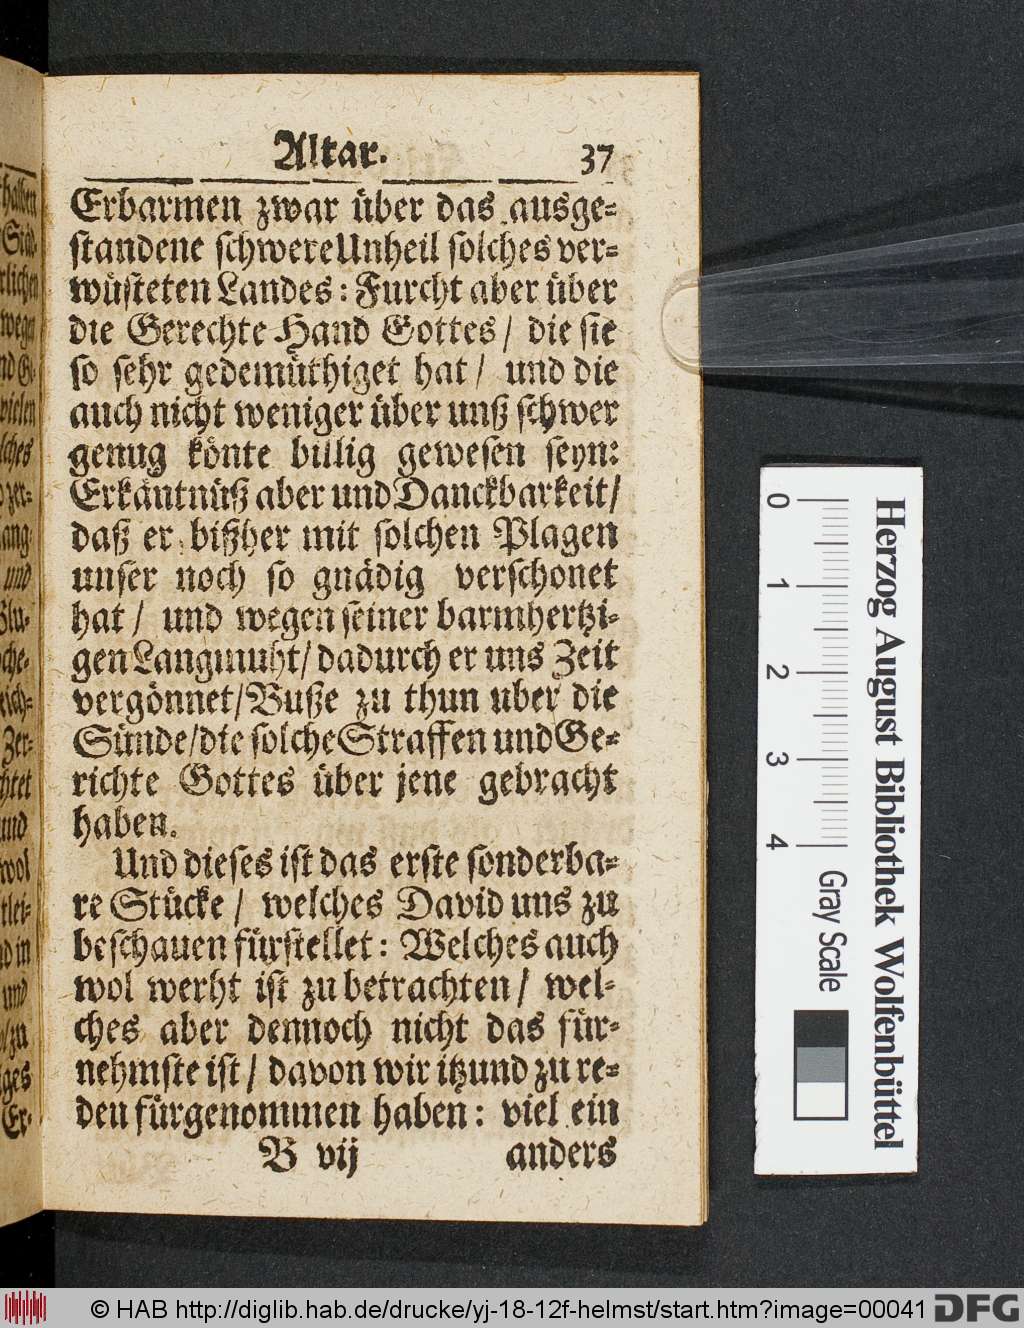 Altar. 37
Erbarmen zwar über das ausge-
standene schwere Unheil solches ver-
wüsteten Landes: Furcht aber über
die Gerechte Hand Gottes / die sie
so sehr gedemüthiget hat / und die
auch nicht weniger über unß schwer
genug könte billig gewesen seyn:
Erkäntnüß aber und Danckbarkeit /
daß er bißher mit solchen Plagen
unser noch so gnädig verschonet
hat / und wegen seiner barmhertzi-
gen Langmuht / dadurch er uns Zeit
vergönnet / Buße zu thun uber die
Sünde / die solche Straffen und Ge-
richte Gottes über jene gebracht
haben.
Und dieses ist das erste sonderba-
re Stücke / welches David uns zu
beschauen fürstellet: Welches auch
wol werht ist zu betrachten / wel-
ches aber dennoch nicht das für-
nehmste ist / davon wir itzund zu re-
den fürgenommen haben: viel ein
B vij anders
halben
wegen
vielen
und
wol
und
Er-
Herzog August Bibliothek Wolfenbüttel
0 1 2 3 4 Gray Scale
© HAB http://diglib.hab.de/drucke/yj-18-12f-helmst/start.htm?image=00041 DFG